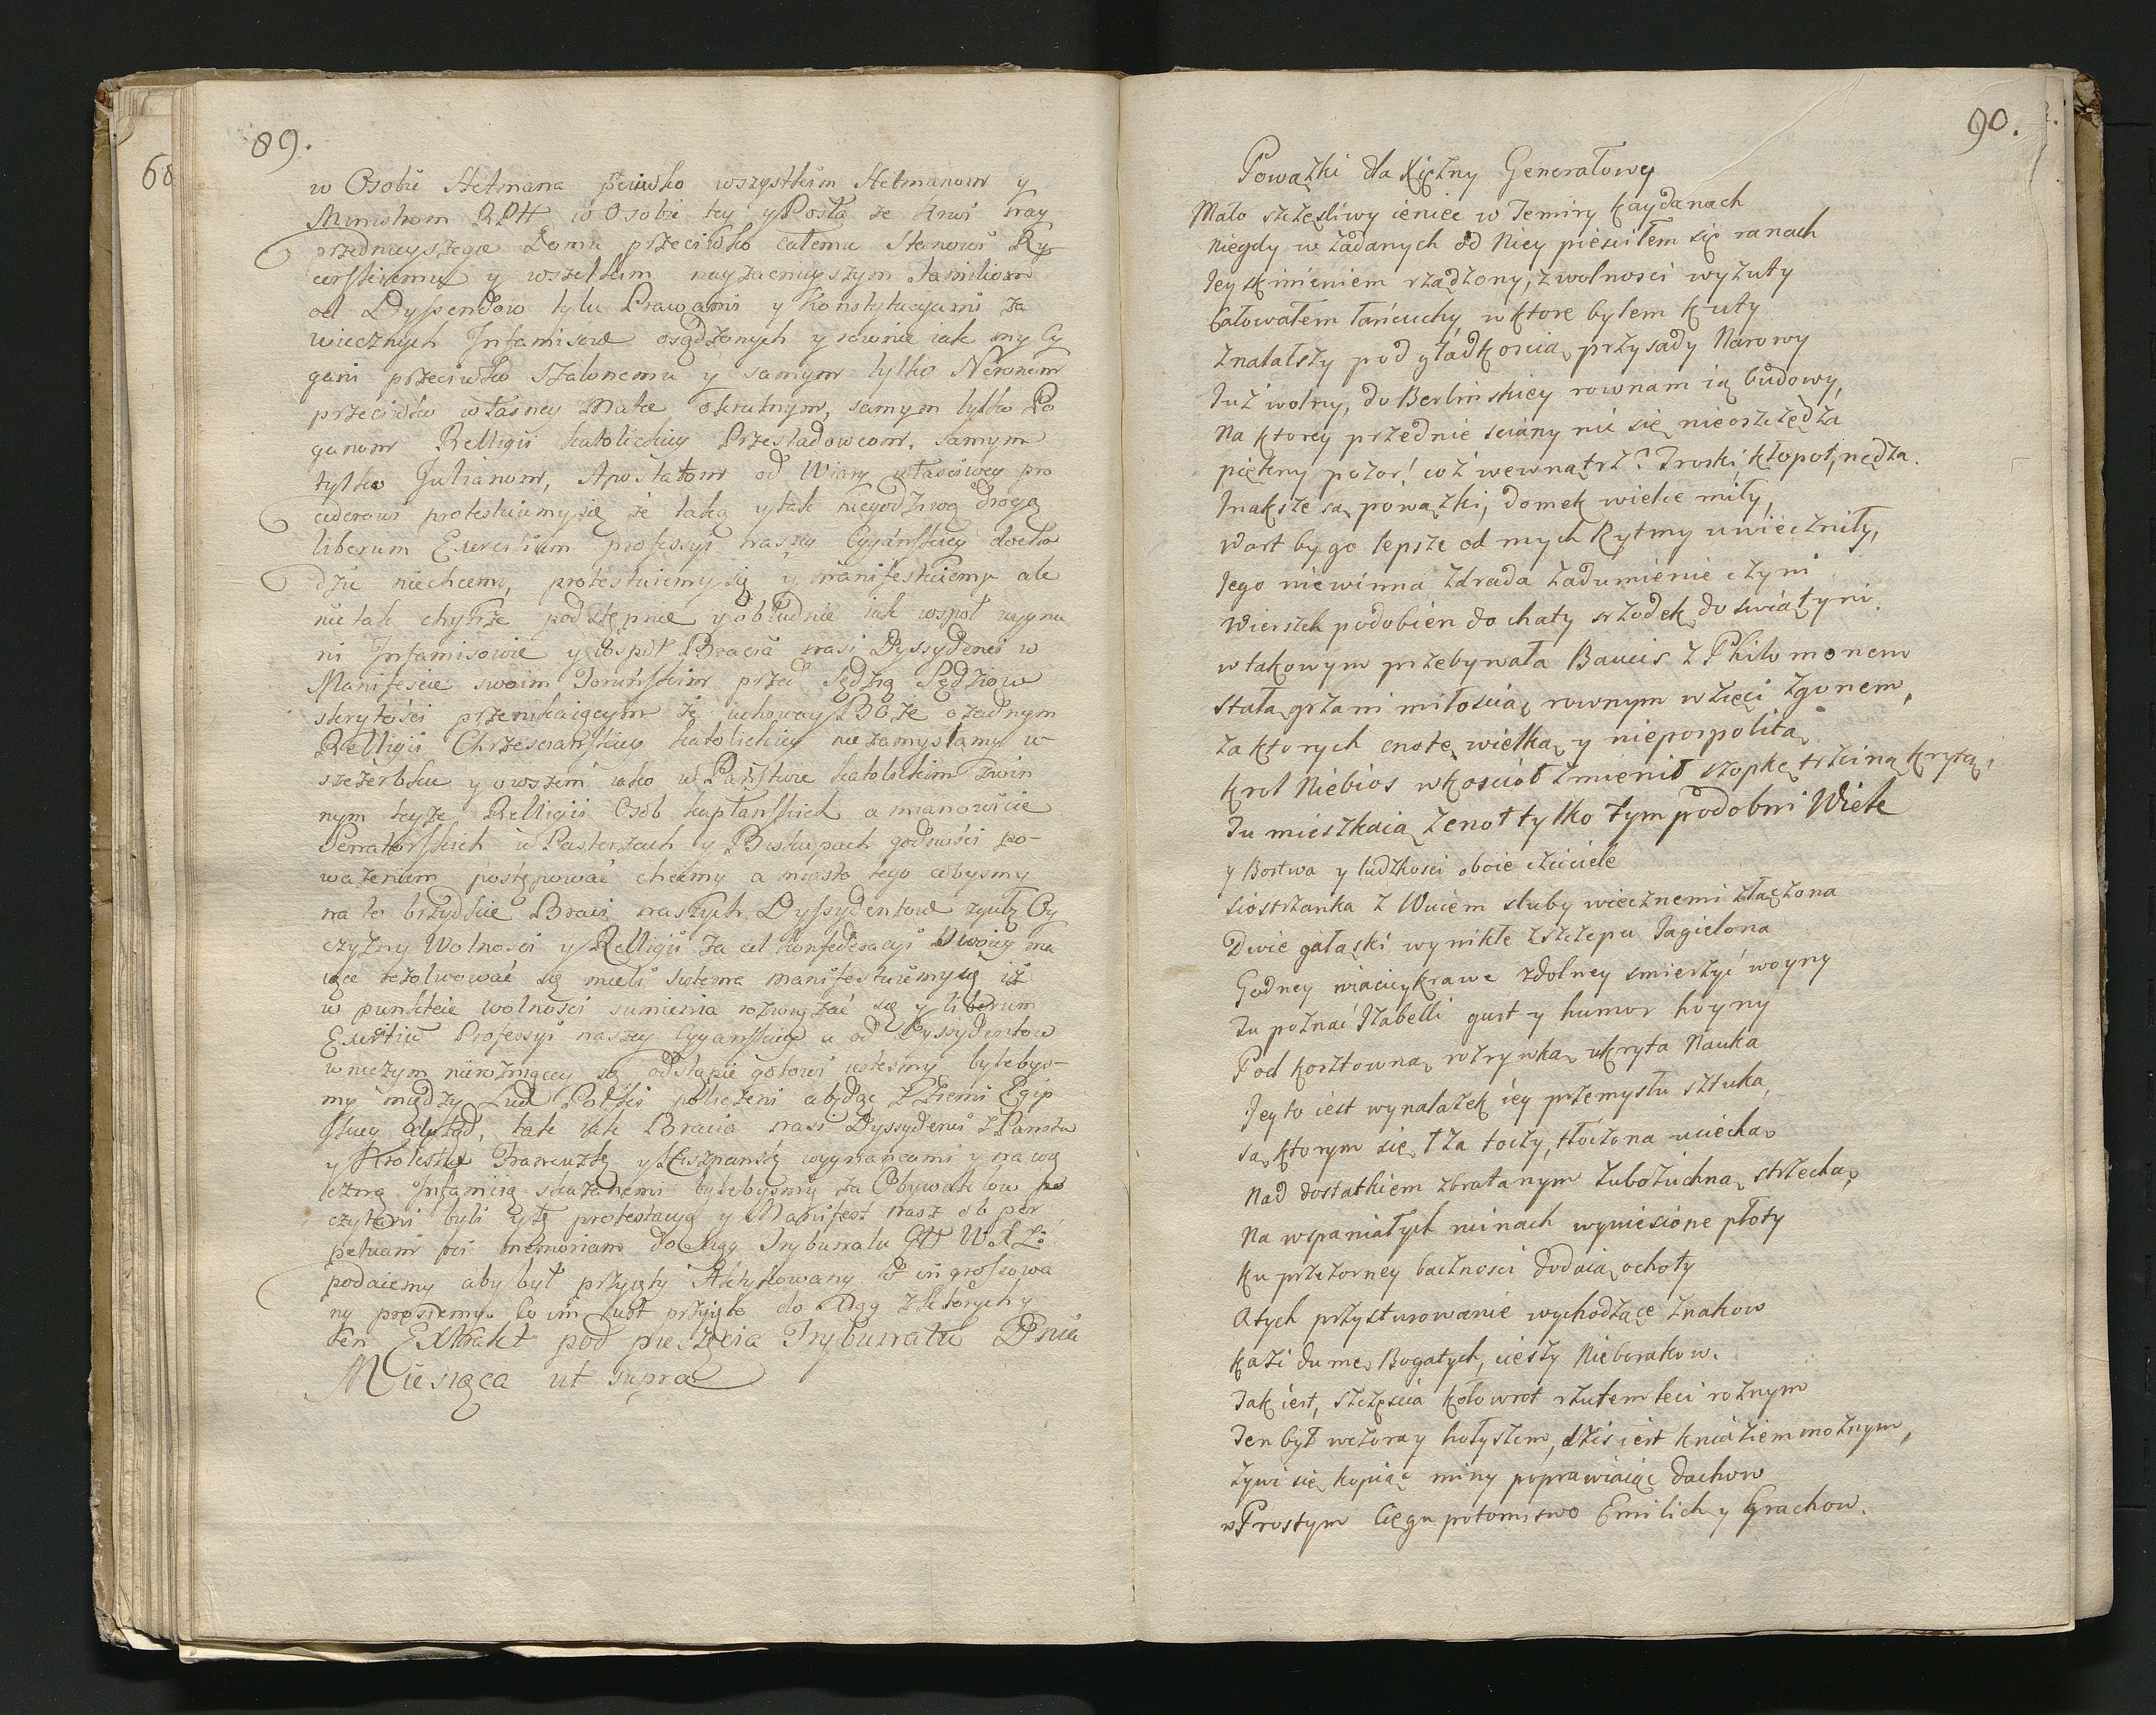 89.
68
w Osobie Hetmana przeciwko wszystkim Hetmanom y
Ministrom RPtt w Osobie tey y Posła ze krwi nay
przednieyszego Domu przeciwko całemu Stanowi Ry
cerskiemu y wszelkim nayzacnieyszym Familiom
od Dyssendow tylu Prawami y Konstytucyami za
wiecznych Infamisow osądzonych y rownie iak my Cy
gani przeciwko Szalonemu y samym tylko Neronem
przeciwko własney Matce okrutnym, samym tylko Po
ganom Relligii katolickiey Przesladowcom, samym
tylko Julianom, Apostatom od Wiary własciwey pro
cederowi protestuiemy się że taką y tak niegodziwą drogą
liberum Exercitium professyi naszey Cygańskiey docho
dzic niechcemy, protestuiemy się y manifestuiemy ale
nie tak chytrze podstępnie y obłudnie iak wspoł wygna
ni Infamisowie y wspoł Bracia nasi Dyssydenci w
Manifescie swoim Toruńskim przed Sędzią Sędziow
skrytości przenikaiącym że uchoway Boże o żadnym
Relligii Chrzescianskiey katolickiey niezamyslamy w
szczerbku y owszem iako w Państwie katolickim z win
nym teyże Relligii Osob kapłanskich a mianowicie
Senatorskich w Pasterzach y Biskupach godności po-
ważeniem postępować chcemy a miasto tego cobysmy
na to brzydkie Braci naszych Dyssydentow zgubę Oy
czyzny Wolności y Relligii za cel konfederacyi swoiey ma
iące rezolwować się mieli solenne manifestuiemy się iż
w punkcie wolności sumienia rozwiązać się y liberum
Exercitiu Professyi naszey Cyganskiey a od Dyssydentow
w niczym nierożniącey się odstąpić gotowi iestesmy bylebys-
my między Lud Polski policzeni a będąc z Ziemi Egip
skiey, tak iak Bracia nasi Dyssydenci z Panstw
y Krolestw Francuzkę y Hiszpanskę wygnańcami y na wie
czną Infamią skazanemi bylebysmy za Obywatelow po
czytani byli y tę protestacyą y Manifest nasz ob per
petuam rei memoriam do Xiąg Trybunalu Gtt W.X.L:
podaiemy aby był przyięty Aktykowany y ingrossowa
ny prosiemy. Co iest przyięto do Xiąg z ktorych y
ten Extrakt pod pieczęcia Trybunału Dnia
Miesiąca ut supra
90.
Powązki dla Xiężny Generałowey
Mało szczęśliwy ieniec w Temiry kaydanach
niegdy w zadanych od Niey pieściłem się ranach
Jey skinieniem rządzony, z wolności wyzuty
Całowałem łańcuchy, w ktore byłem kuty
Znalałszy pod gładkoscią, przysady Narowy
Już wolny, do Berlinskiey rownam ią budowy,
Na ktorey przednie sciany nic się nieoszczędza
piękny pozor! coż wewnątrz? Troski, kłopot, nędza.
Inaksze są powązki, domek wielce miły,
Wart by go lepsze od mych Rytmy uwieczniły,
Jego niewinna zdrada zadumienie czyni
Wierszch podobien do chaty srzodek do swiątyni.
w takowym przebywała Baucis z Philomonem
Stałą grzani miłoscią, rownym wzięci zgonem,
za ktorych cnotę wielką y niepospolitą
Krol Niebios w kościoł zmienił szopkę trzciną krytą,
Tu mieszkaią z cnot tylko tym podobni Wiele
y Bostwa y ludzkosci oboie cziciele
Siostrzanka z Wuiem sluby wiecznemi złączona
Dwie gałąski wynikłe z szczepu Jagielona
Godney niaciey krawe zdolney smierzyć woyny
Tu poznać Izabelli gust y humor hoyny
Pod kosztowną rozrywką ukryta Nauka
Jey to iest wynalazek iey przemysłu sztuka,
Są ktorym się łza toczy, tłoczona uciechą
Nad dostatkiem zbratanym zubożuchną strzechą,
Na wspaniałych ruinach wyniesione płoty
ku przezorney baczności dodaią ochoty
A tych przysturowanie wychodzące znakow
każi dumę Bogatych, cieszy Nieborakow.
Jak iest, szczęscia kołowrot rzutem leci rożnym
Ten był wczoray hołyszem, dziś iest kniaziem możnym,
żywi się kopiąc miny poprawiaiąc dachow
w Prostym Ciągu potomstwo Emilich y Grachow.